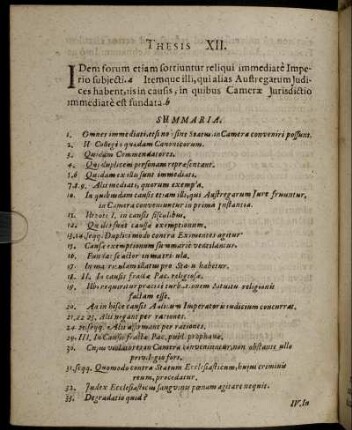 THESIS XII.
IDem forum etiam sortiuntur reliqui immediatè Impe-
rio subjecti. a Itemque illi, qui alias Austregarum Judi-
ces habent, iis in causis, in quibus Cameræ Jurisdictio
immediatè est fundata. b
SUMMARIA.
1. Omnes immediati, etsi non sint Status, in Camera conveniri possunt.
2. Collegia quædam Canonicorum.
3. Quidam Commendatores.
4. Qui duplicem personam repræsentant.
5.6. Quidam ex illis sunt immediati.
7.8.9. Alii mediati, quorum exempla.
10. In quibusdam causis etiam illi, qui Austregarum Jure fruuntur,
in Camera conveniuntur in prima Instantia.
11. in causis fiscalibus,
12. causa exemptionum,
13.14. seqq. Duplici modo contra Eximentes agitur
15. Causæ exemptionum summariè
16. actor in matricula,
17. In matriculam illatus pro Statu habetur.
18. II. In causis fractæ Pac. religiosæ.
19. religionis
factam esse.
20. An in hisce causis Aulicum Imperatoris judicium concurrat.
21.22.23. Alii negant per rationes.
24. seqq. Alii affirmant per rationes.
29. III. In Causis fractæ Pac. publ. prophanæ,
30. Cujus violatores in Camera conveniuntur, non obstante ullo
privilegio fori.
31. seqq. Quomodo contra Statum Ecclesiasticum, hujus criminis
reum, procedatur.
32. Judex Ecclesiasticus sanguinis pœnam agitare nequit.
33. Degradatio quid?
IV. In